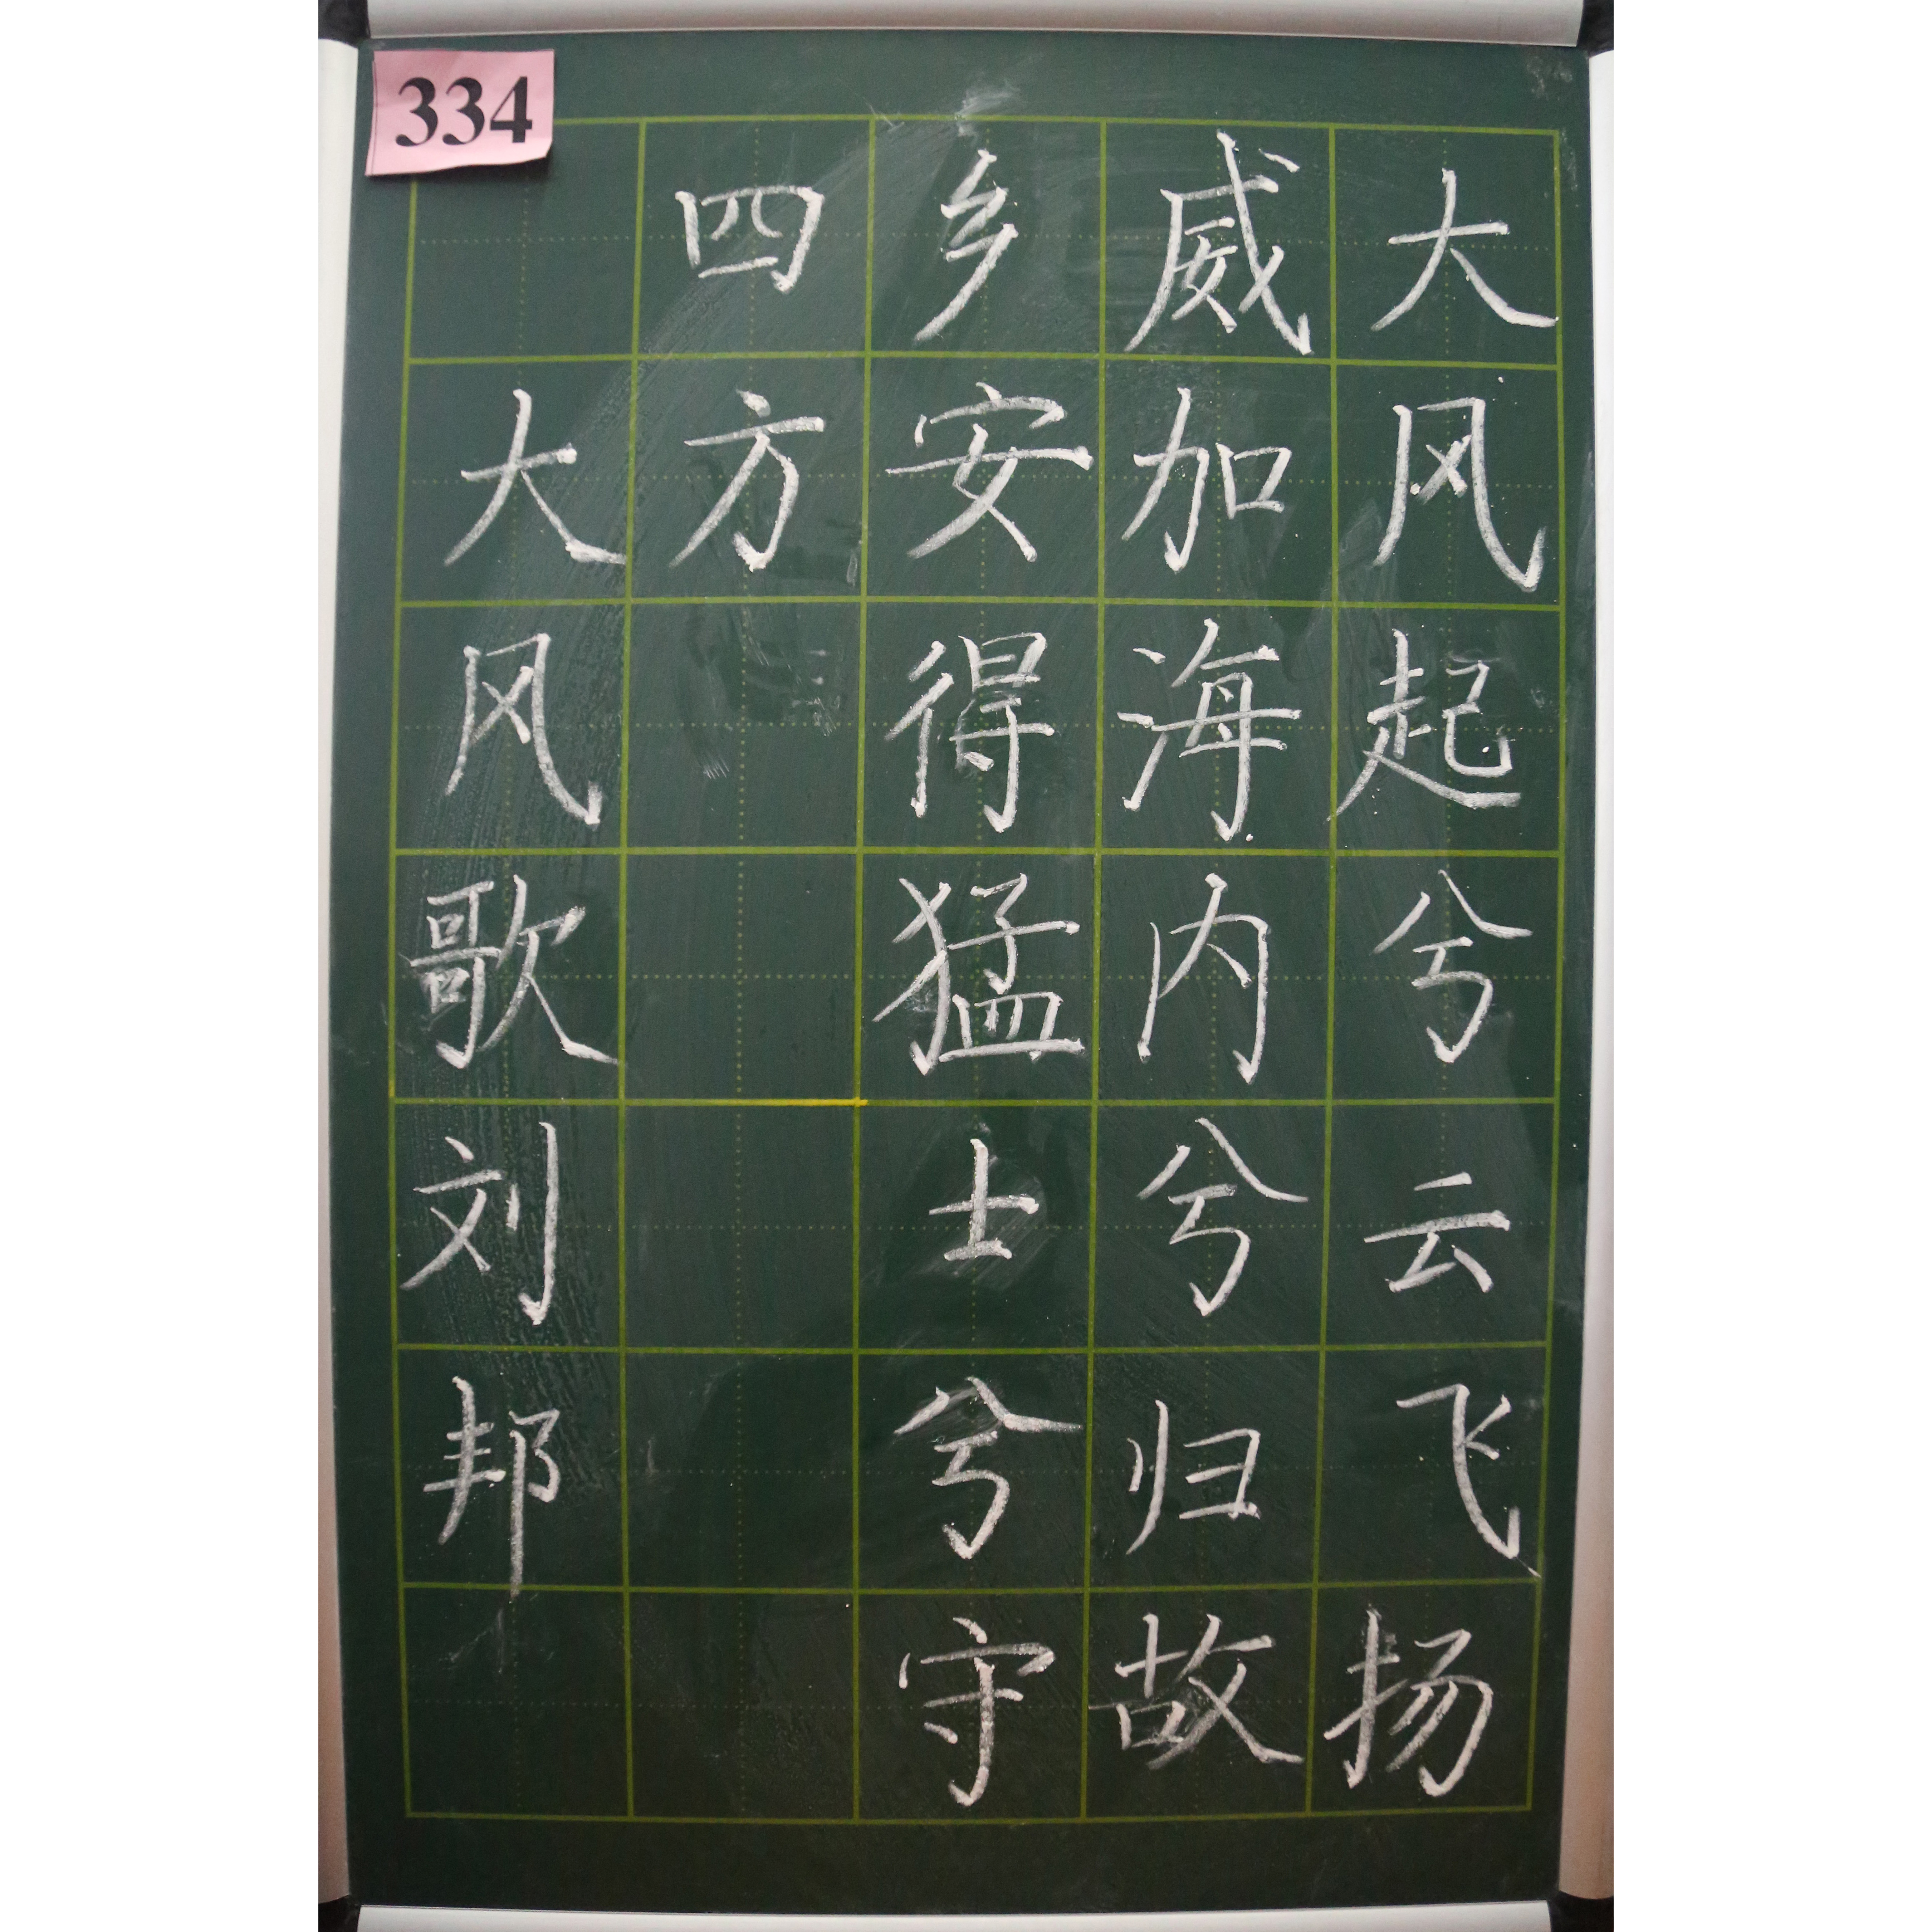 334
大风起兮云飞扬
威加海内兮归故
乡安得猛士兮守
四方
大风歌刘邦